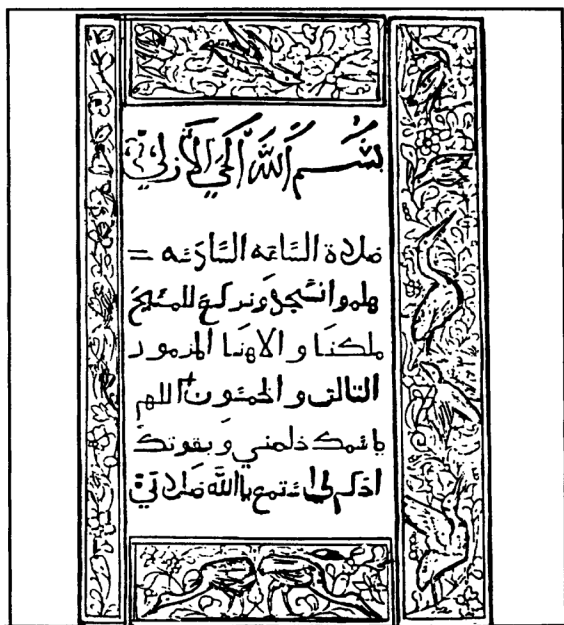 بسم الله الحي الازلي
صلاة الساعه السادسه =
هلموا نسجد ونركع للمسيح
ملكنا و الاهنا المزمور
التالت و الخمسون اللهم
باسمك خلصني وبقوتك
احكم لي استمع يا الله صلاتي